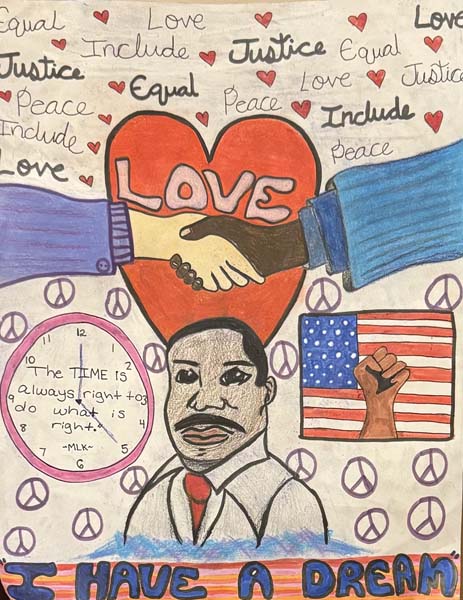 Equal Love Love
Include Justice Equal
Justice Equal Love Justice
Peace Peace Include
Include Peace
Love
LOVE
12
11 1
10 2
The TIME is
always right to
9 3
do what is
8 4
right."
-MLK-
7 5
6
"I HAVE A DREAM"